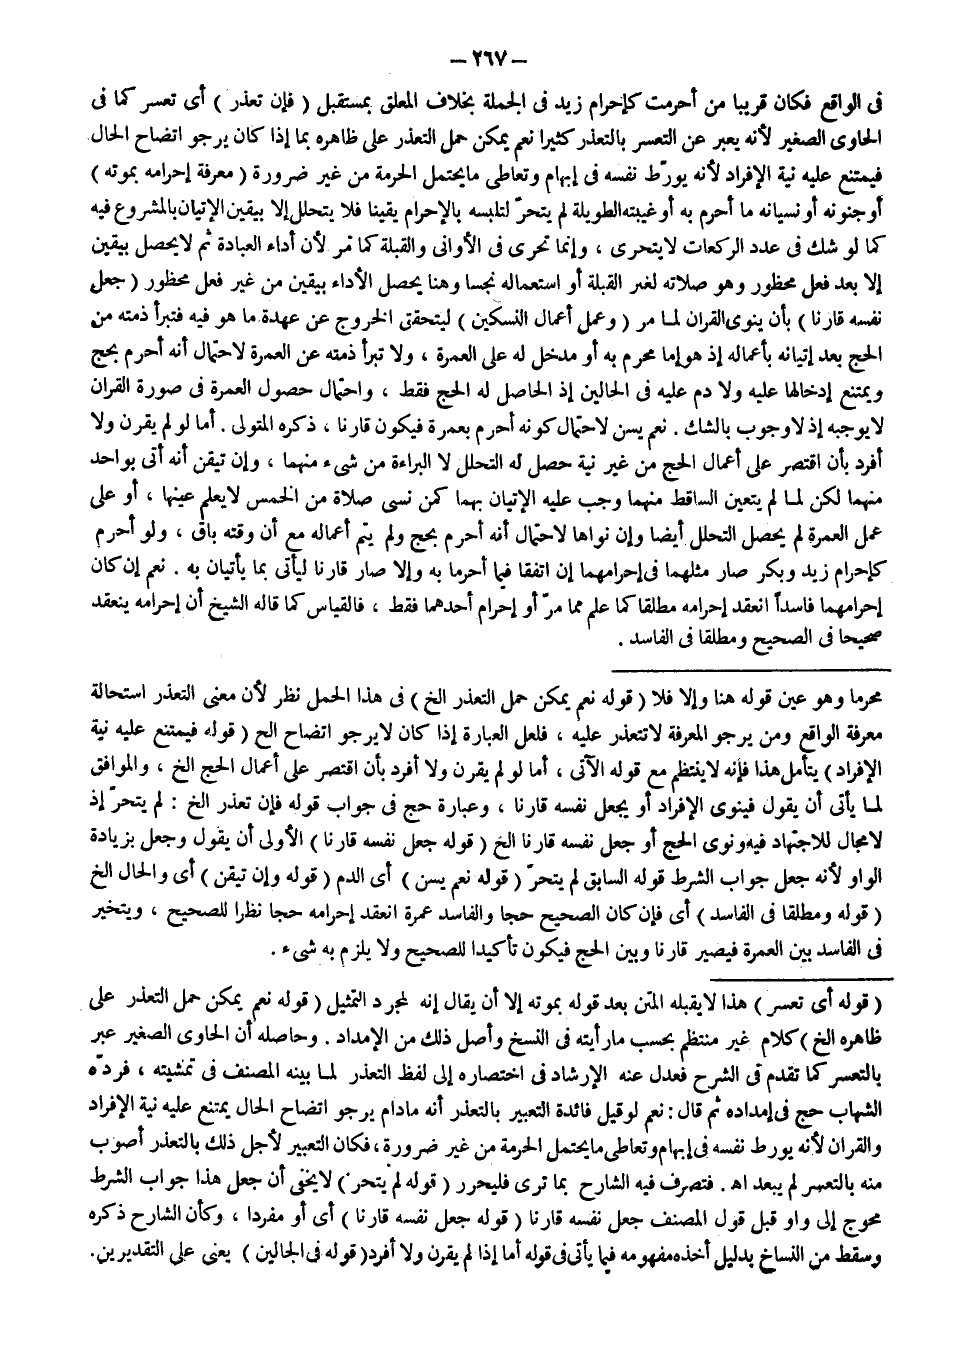 — ٢٦٧ —
فى الواقع فكان قريبا من أحرمت كإحرام زيد فى الجملة بخلاف المعلق بمستقبل ( فإن تعذر ) أى تعسر كما فى
الحاوى الصغير لأنه يعبر عن التعسر بالتعذر كثيرا نعم يمكن حمل التعذر على ظاهره بما إذا كان يرجو اتضاح الحال
فيمتنع عليه نية الإفراد لأنه يورّط نفسه فى إبهام وتعاطى مايحتمل الحرمة من غير ضرورة ( معرفة إحرامه بموته )
أوجنونه أونسيانه ما أحرم به أوغيبته الطويلة لم يتحرّ لتلبسه بالإحرام يقينا فلا يتحلل إلا بيقين الإتيان بالمشروع فيه
كما لو شك فى عدد الركعات لايتحرى ، وإنما تحرى فى الأوانى والقبلة كما مر لأن أداء العبادة ثم لايحصل بيقين
إلا بعد فعل محظور وهو صلاته لغير القبلة أو استعماله نجسا وهنا يحصل الأداء بيقين من غير فعل محظور ( جعل
نفسه قارنا ) بأن ينوى القران لما مر ( وعمل أعمال النسكين ) ليتحقق الخروج عن عهدة ما هو فيه فتبرأ ذمته من
الحج بعد إتيانه بأعماله إذ هو إما محرم به أو مدخل له على العمرة ، ولا تبرأ ذمته عن العمرة لاحتمال أنه أحرم بحج
ويمتنع إدخالها عليه ولا دم عليه فى الحالين إذ الحاصل له الحج فقط ، واحتمال حصول العمرة فى صورة القران
لايوجبه إذ لاوجوب بالشك . نعم يسن لاحتمال كونه أحرم بعمرة فيكون قارنا ، ذكره المتولى . أما لو لم يقرن ولا
أفرد بأن اقتصر على أعمال الحج من غير نية حصل له التحلل لا البراءة من شىء منهما ، وإن تيقن أنه أتى بواحد
منهما لكن لما لم يتعين الساقط منهما وجب عليه الإتيان بهما كمن نسى صلاة من الخمس لايعلم عينها ، أو على
عمل العمرة لم يحصل التحلل أيضا وإن نواها لاحتمال أنه أحرم بحج ولم يتم أعماله مع أن وقته باق ، ولو أحرم
كإحرام زيد وبكر صار مثلهما فى إحرامهما إن اتفقا فيما أحرما به وإلا صار قارنا ليأتى بما يأتيان به . نعم إن كان
إحرامهما فاسداً انعقد إحرامه مطلقا كما علم مما مرّ أو إحرام أحدهما فقط ، فالقياس كما قاله الشيخ أن إحرامه ينعقد
صحيحا فى الصحيح ومطلقا فى الفاسد .
محرما وهو عين قوله هنا وإلا فلا ( قوله نعم يمكن حمل التعذر الخ ) فى هذا الحمل نظر لأن معنى التعذر استحالة
معرفة الواقع ومن يرجو المعرفة لاتتعذر عليه ، فلعل العبارة إذا كان لايرجو اتضاح الح ( قوله فيمتنع عليه نية
الإفراد ) يتأمل هذا فإنه لاينتظم مع قوله الآتى ، أما لو لم يقرن ولا أفرد بأن اقتصر على أعمال الحج الخ ، والموافق
لما يأتى أن يقول فينوى الإفراد أو يجعل نفسه قارنا ، وعبارة حج فى جواب قوله فإن تعذر الخ : لم يتحرّ إذ
لامجال للاجتهاد فيه ونوى الحج أو جعل نفسه قارنا الخ ( قوله جعل نفسه قارنا ) الأولى أن يقول وجعل بزيادة
الواو لأنه جعل جواب الشرط قوله السابق لم يتحرّ ( قوله نعم يسن ) أى الدم ( قوله وإن تيقن ) أى والحال الخ
( قوله ومطلقا فى الفاسد ) أى فإن كان الصحيح حجا والفاسد عمرة انعقد إحرامه حجا نظرا للصحيح ، ويتخير
فى الفاسد بين العمرة فيصير قارنا وبين الحج فيكون تأكيدا للصحيح ولا يلزم به شىء .
( قوله أى تعسر ) هذا لايقبله المتن بعد قوله بموته إلا أن يقال إنه لمجرد التمثيل ( قوله نعم يمكن حمل التعذر على
ظاهره الخ ) كلام غير منتظم بحسب مارأيته فى النسخ وأصل ذلك من الإمداد . وحاصله أن الحاوى الصغير عبر
بالتعسر كما تقدم فى الشرح فعدل عنه الإرشاد فى اختصاره إلى لفظ التعذر لما بينه المصنف فى تمشيته ، فردّه
الشهاب حج فى إمداده ثم قال : نعم لوقيل فائدة التعبير بالتعذر أنه مادام يرجو اتضاح الحال يمتنع عليه نية الإفراد
والقران لأنه يورط نفسه فى إبهام وتعاطى مايحتمل الحرمة من غير ضرورة ، فكان التعبير لأجل ذلك بالتعذر أصوب
منه بالتعسر لم يبعد اهـ . فتصرف فيه الشارح بما ترى فليحرر ( قوله لم يتحر ) لايخفى أن جعل هذا جواب الشرط
محوج إلى واو قبل قول المصنف جعل نفسه قارنا ( قوله جعل نفسه قارنا ) أى أو مفردا ، وكأن الشارح ذكره
وسقط من النساخ بدليل أخذه مفهومه فيما يأتى فى قوله أما إذا لم يقرن ولا أفرد ( قوله فى الحالين ) يعنى على التقديرين .